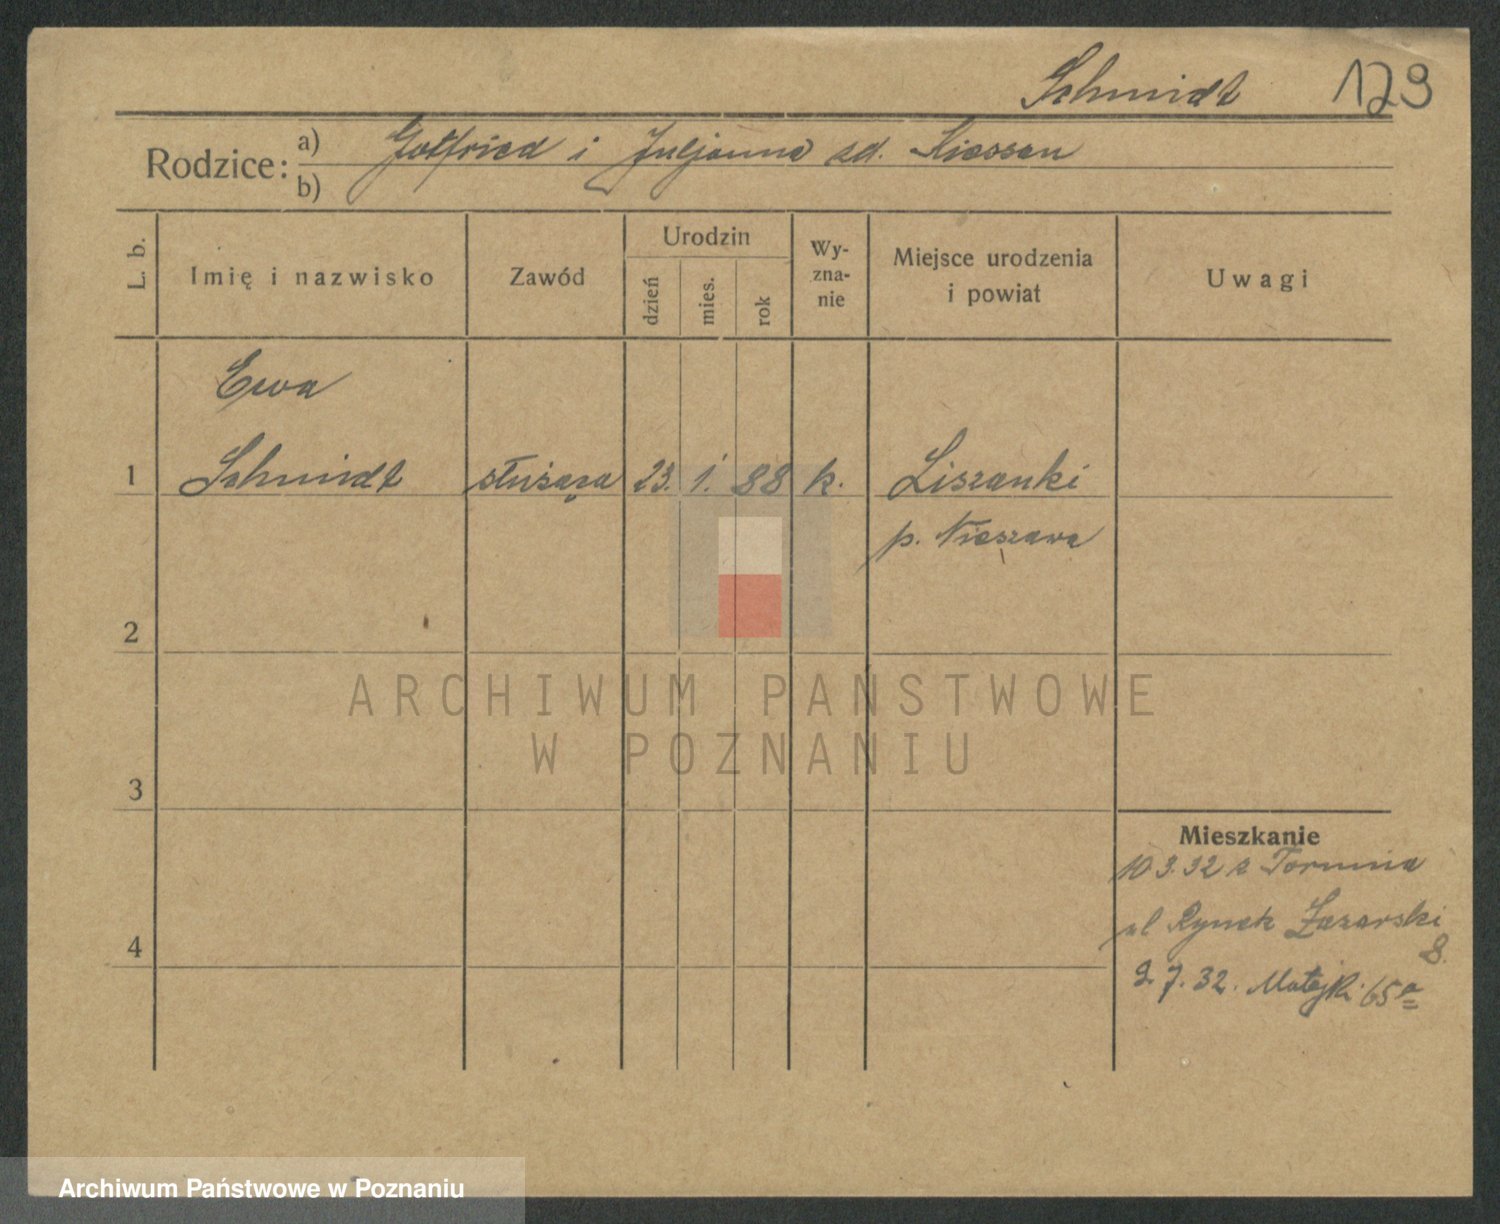 Schmidt 129
Rodzice:
a) Gotfried i Juljanna zd. Kiessen
b)
L. b.
Imię i nazwisko
Zawód
Urodzin
dzień
mies.
rok
Wy-
zna-
nie
Miejsce urodzenia
i powiat
Uwagi
Ewa
1 Schmidt służąca 23. 1. 88 k. Liszanki
p. Nieszawa
2
3
4
Mieszkanie
10 3.32 z Torunia
ul Rynek Łazarski
8.
2. 7. 32. Matejki 65a
ARCHIWUM PAŃSTWOWE
W POZNANIU
Archiwum Państwowe w Poznaniu